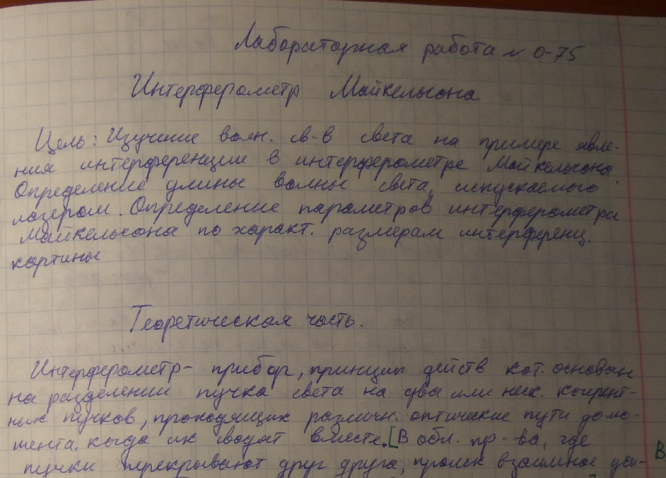 Лабораторная работа № О-75
Интерферометр Майкельсона
Цель: Изучение волн. св-в света на примере явле-
ния интерференции в интерферометре Майкельсона
Определение длины волны света, испускаемого
лазером. Определение параметров интерферометра
Майкельсона по характ. размерам интерференц.
картины
Теоретическая часть.
Интерферометр- прибор, принцип действ кот. основан
на разделении пучка света на два или неск. когерент-
ных пучков, проходящих различн. оптические пути до мо-
мента, когда их сводят вместе. [В обл. пр-ва, где
пучки перекрывают друг друга, происх взаимное
В